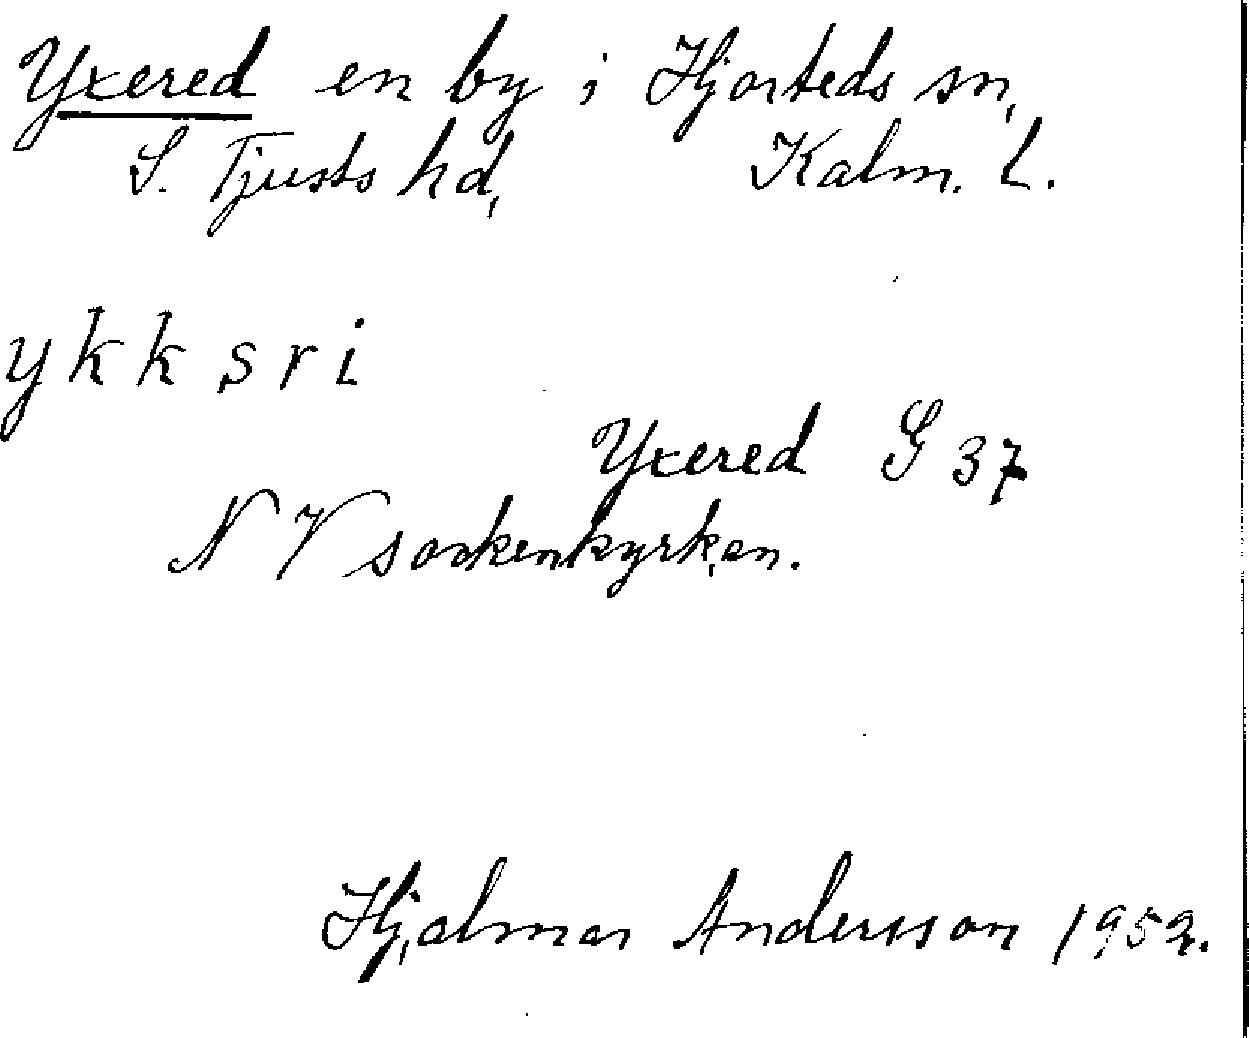 Yxered en by i Hjorteds sn,
S. Tjusts hd, Kalm. L.
ykksri
Yxered G 37
NV sockenkyrkan.
Hjalmar Andersson 1952.